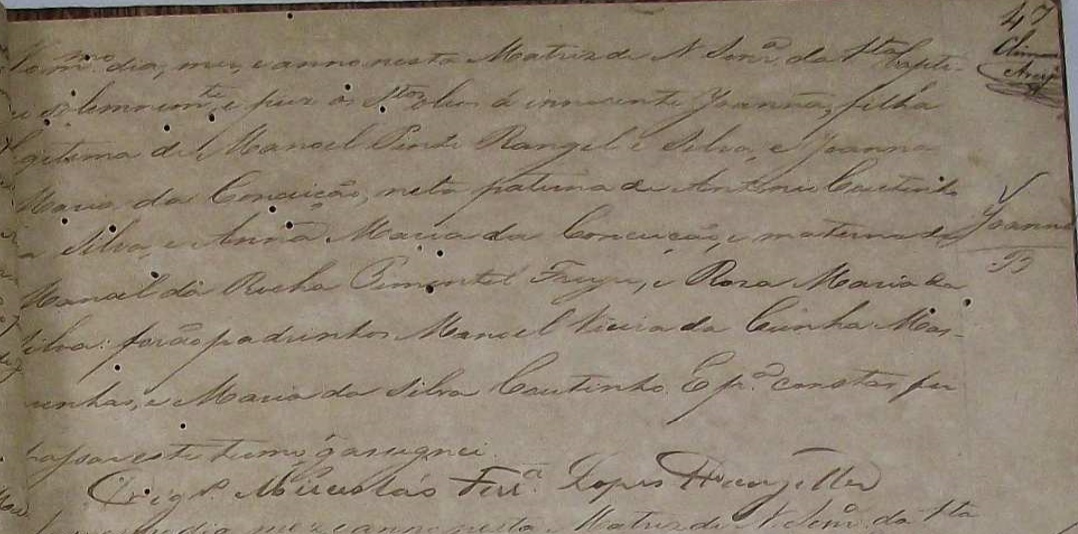 47
mo. dia, mes, e anno nesta Matriz de N Senrª. da
solemnemte. e puz os Stos. oleos a innocente Joanna, filha
gitima de Manoel Pinto Rangel e Silva, e Joanna
Maria da Conceição, neta paterna de Antonio Coutinho
a Silva, e Anna Maria da Conceição, e materna de
Joanna
B
Manoel da Rocha Pimentel Freyre, e Rosa Maria da
Silva: forão padrinhos Manoel Vieira da Cunha Mar-
inhas, e Maria da Silva Coutinho. E pª. constar fiz
este termo, q assignei.
Ferª. Lopes
dia mez e anno nesta Matriz de N. Senrª. da